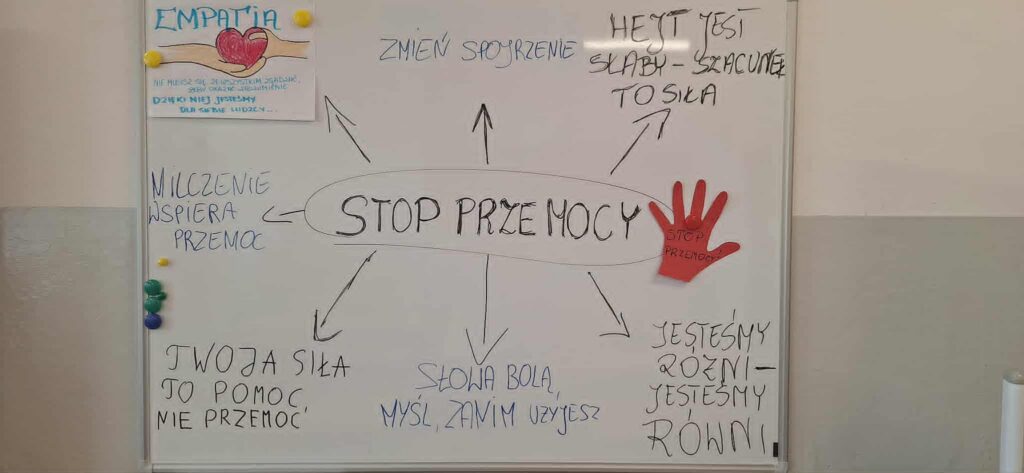 EMPATIA
NIE MUSISZ SIĘ ZE WSZYSTKIM ZGADZAĆ,
ŻEBY OKAZAĆ ZROZUMIENIE
DZIĘKI NIEJ JESTEŚMY
DLA SIEBIE LUDŹMI...
ZMIEŃ SPOJRZENIE
HEJT JEST
SŁABY – SZACUNEK
TO SIŁA
MILCZENIE
WSPIERA
PRZEMOC
STOP PRZEMOCY
STOP
PRZEMOCY!
TWOJA SIŁA
TO POMOC
NIE PRZEMOC
SŁOWA BOLĄ,
MYŚL, ZANIM UŻYJESZ
JESTEŚMY
RÓŻNI –
JESTEŚMY
RÓWNI